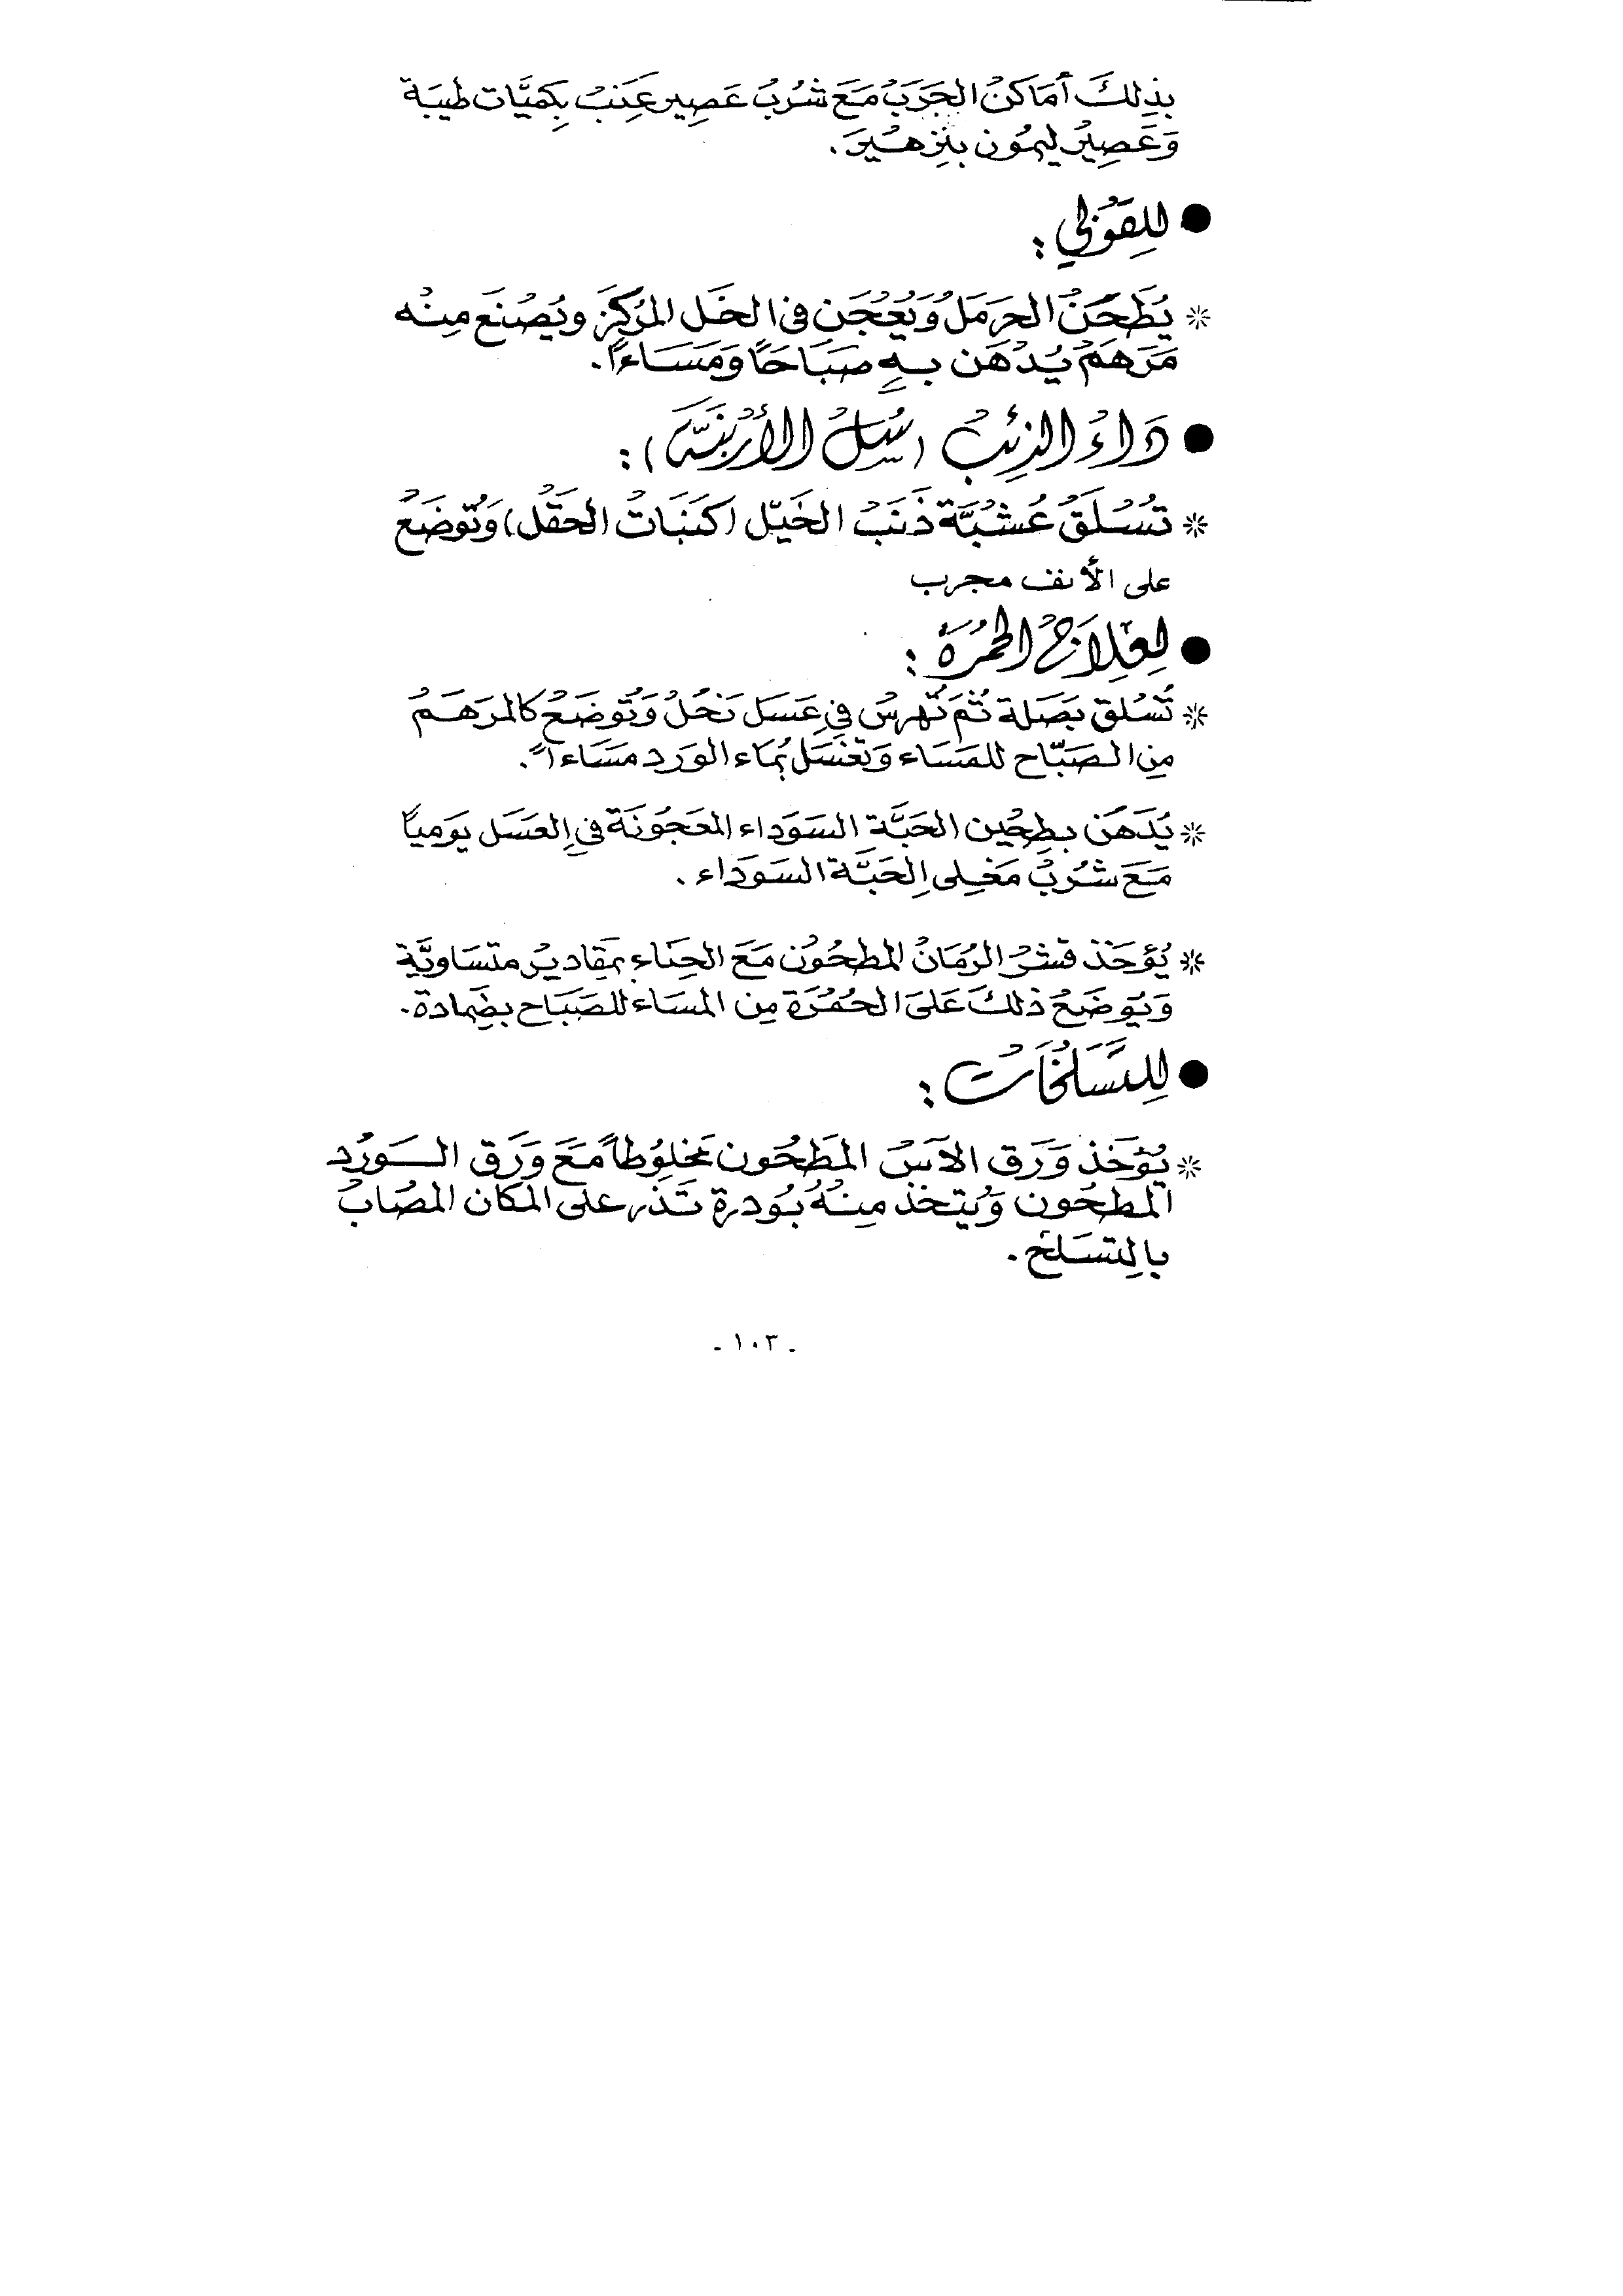 بذلك أماكن الجرب مع شرب عصير عنب بكميات طيبة
وعصير ليمون بنزهير.
● للقوبي :
* يطحن الحرمل ويعجن في الخل المركز ويصنع منه
مرهم يدهن به صباحاً ومساءاً.
● داء الذئب (سل الأرنبة) :
* تسلق عشبة ذنب الخيل (كنبات الحقل) وتوضع
على الأنف مجرب
● لعلاج الحمرة :
* تسلق بصلة ثم تهرس في عسل نحل وتوضع كالمرهم
من الصباح للمساء وتغسل بماء الورد مساءاً.
* يدهن بطحين الحبة السوداء المعجونة في العسل يومياً
مع شرب مغلي الحبة السوداء.
* يؤخذ قشر الرمان المطحون مع الحناء بمقادير متساوية
ويوضع ذلك على الحمرة من المساء للصباح بضمادة.
● للتسلخات :
* يؤخذ ورق الآس المطحون مخلوطاً مع ورق الورد
المطحون ويتخذ منه بودرة تذر على المكان المصاب
بالتسلخ.
- ١٠٣ -